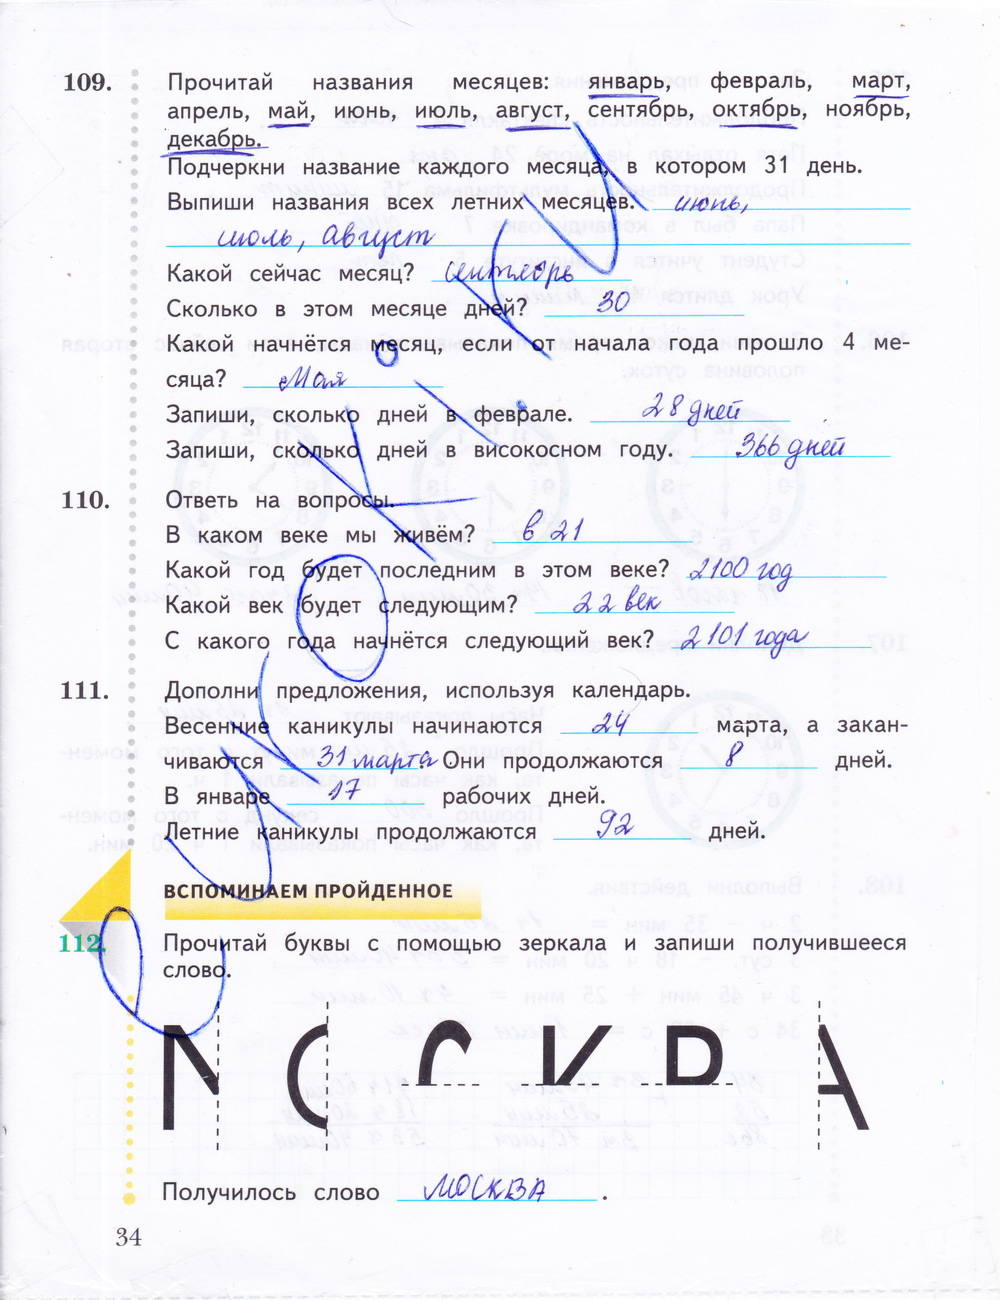 109. Прочитай названия месяцев: январь, февраль, март,
апрель, май, июнь, июль, август, сентябрь, октябрь, ноябрь,
декабрь.
Подчеркни название каждого месяца, в котором 31 день.
Выпиши названия всех летних месяцев. июнь,
июль, август
Какой сейчас месяц? сентябрь
Сколько в этом месяце дней? 30
Какой начнётся месяц, если от начала года прошло 4 ме-
сяца? Мая
Запиши, сколько дней в феврале. 28 дней
Запиши, сколько дней в високосном году. 366 дней
110. Ответь на вопросы.
В каком веке мы живём? в 21
Какой год будет последним в этом веке? 2100 год
Какой век будет следующим? 22 век
С какого года начнётся следующий век? 2101 года
111. Дополни предложения, используя календарь.
Весенние каникулы начинаются 24 марта, а закан-
чиваются 31 марта Они продолжаются 8 дней.
В январе 17 рабочих дней.
Летние каникулы продолжаются 92 дней.
ВСПОМИНАЕМ ПРОЙДЕННОЕ
112. Прочитай буквы с помощью зеркала и запиши получившееся
слово.
Получилось слово МОСКВА .
34